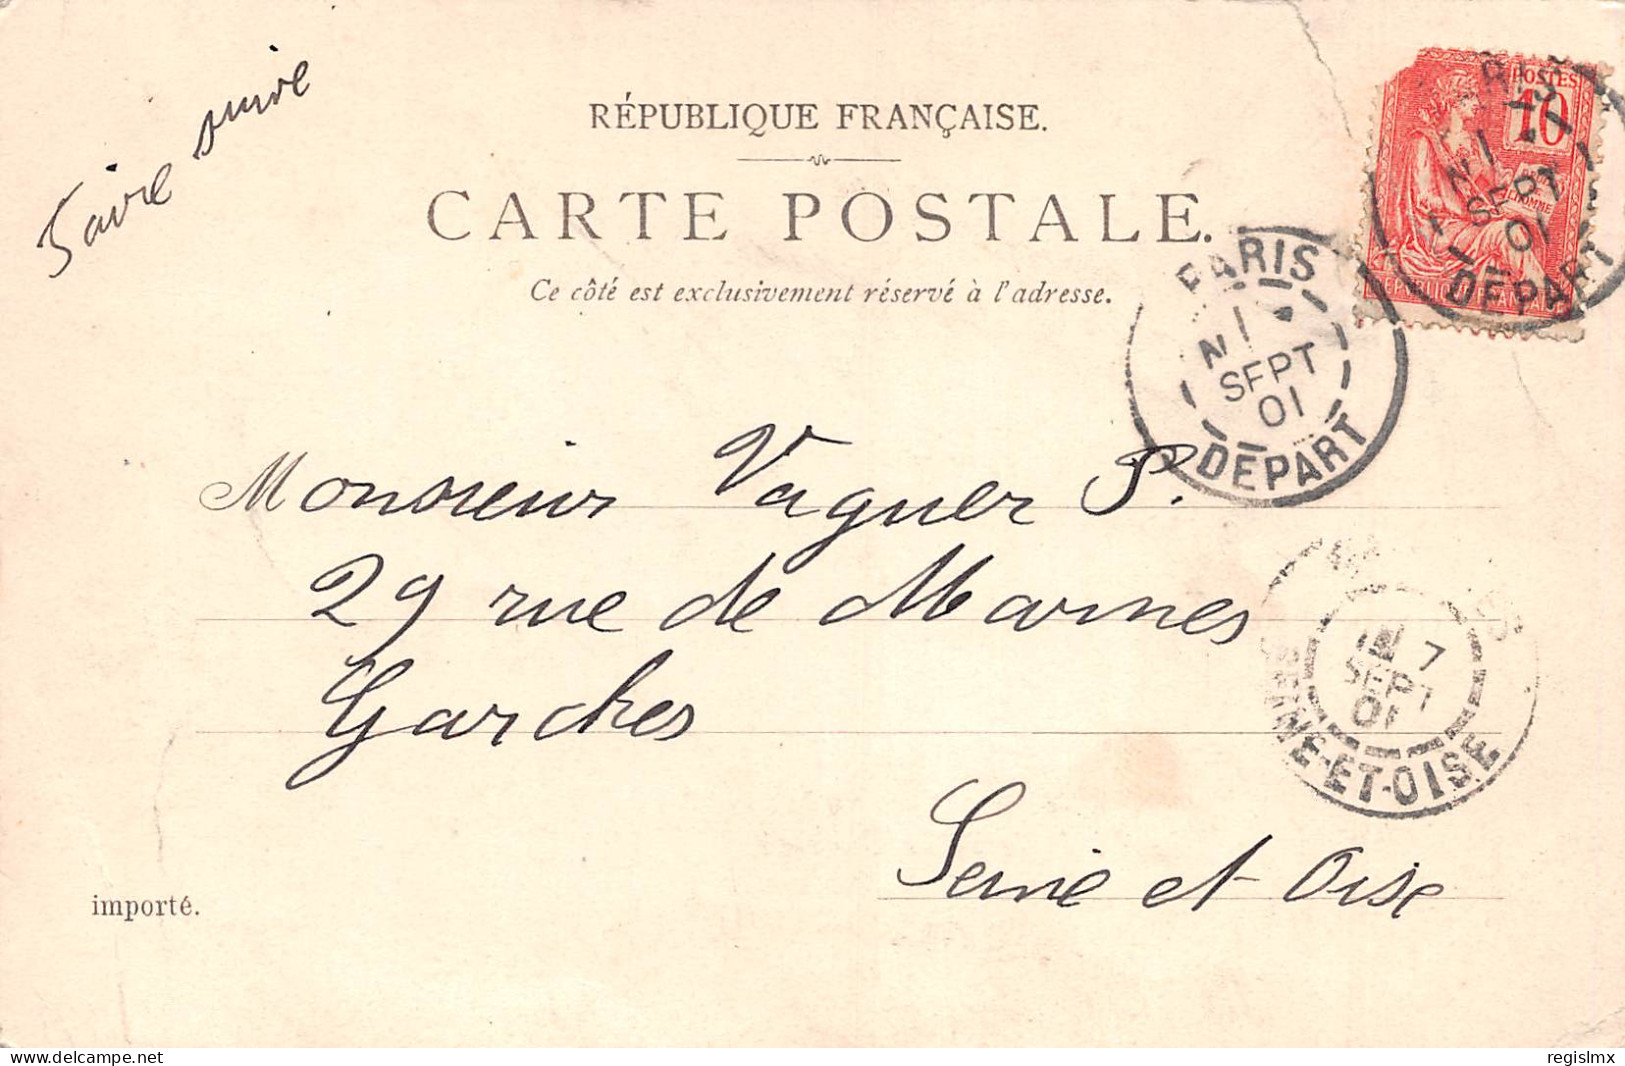 Faire suivre
RÉPUBLIQUE FRANÇAISE.
CARTE POSTALE.
Ce côté est exclusivement réservé à l'adresse.
POSTES
10
PARIS
SEPT
01
DÉPART
PARIS
SEPT
01
DÉPART
Monsieur Vaguer P.
29 rue de Marnes
Garches
Seine et Oise
7
SEPT
01
SEINE-ET-OISE
importé.
delcampe.net
regislmx